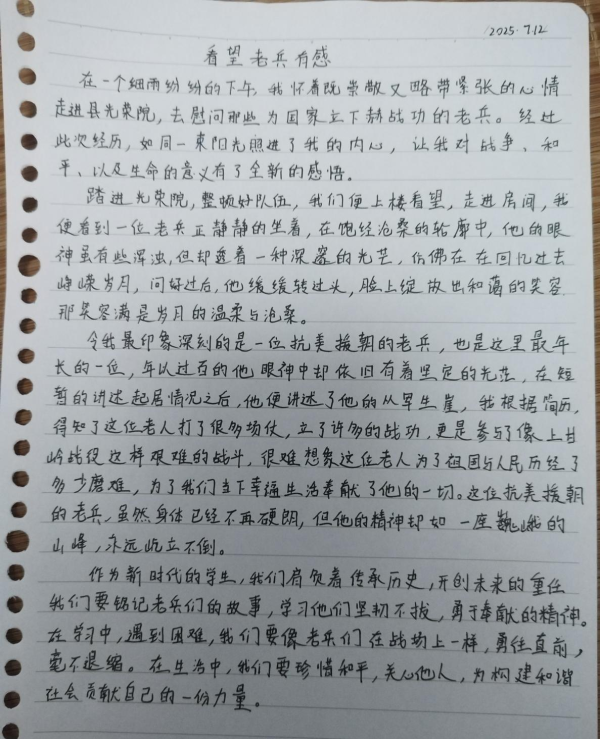 2025.7.12
看望老兵有感
在一个细雨纷纷的下午,我怀着既崇敬又略带紧张的心情
走进县光荣院,去慰问那些为国家立下赫战功的老兵。经过
此次经历,如同一束阳光照进了我的内心,让我对战争、和
平、以及生命的意义有了全新的感悟。
踏进光荣院,整顿好队伍,我们便上楼看望,走进房间,我
便看到一位老兵正静静的坐着,在饱经沧桑的轮廓中,他的眼
神虽有些浑浊,但却透着一种深邃的光芒,仿佛在在回忆过去
峥嵘岁月,问好过后,他缓缓转过头,脸上绽放出和蔼的笑容
那笑容满是岁月的温柔与沧桑。
令我最印象深刻的是一位抗美援朝的老兵,也是这里最年
长的一位,年以过百的他眼神中却依旧有着坚定的光芒,在短
暂的讲述起居情况之后,他便讲述了他的从军生崖,我根据简历,
得知了这位老人打了很多场仗,立了许多的战功,更是参与了像上甘
岭战役这样艰难的战斗,很难想象这位老人为了祖国与人民历经了
多少磨难,为了我们当下幸福生活奉献了他的一切。这位抗美援朝
的老兵,虽然身体已经不再硬朗,但他的精神却如一座巍峨的
山峰,永远屹立不倒。
作为新时代的学生,我们肩负着传承历史,开创未来的重任
我们要铭记老兵们的故事,学习他们坚韧不拔,勇于奉献的精神。
在学习中,遇到困难,我们要像老兵们在战场上一样,勇往直前,
毫不退缩。在生活中,我们要珍惜和平,关心他人,为构建和谐
社会贡献自己的一份力量。